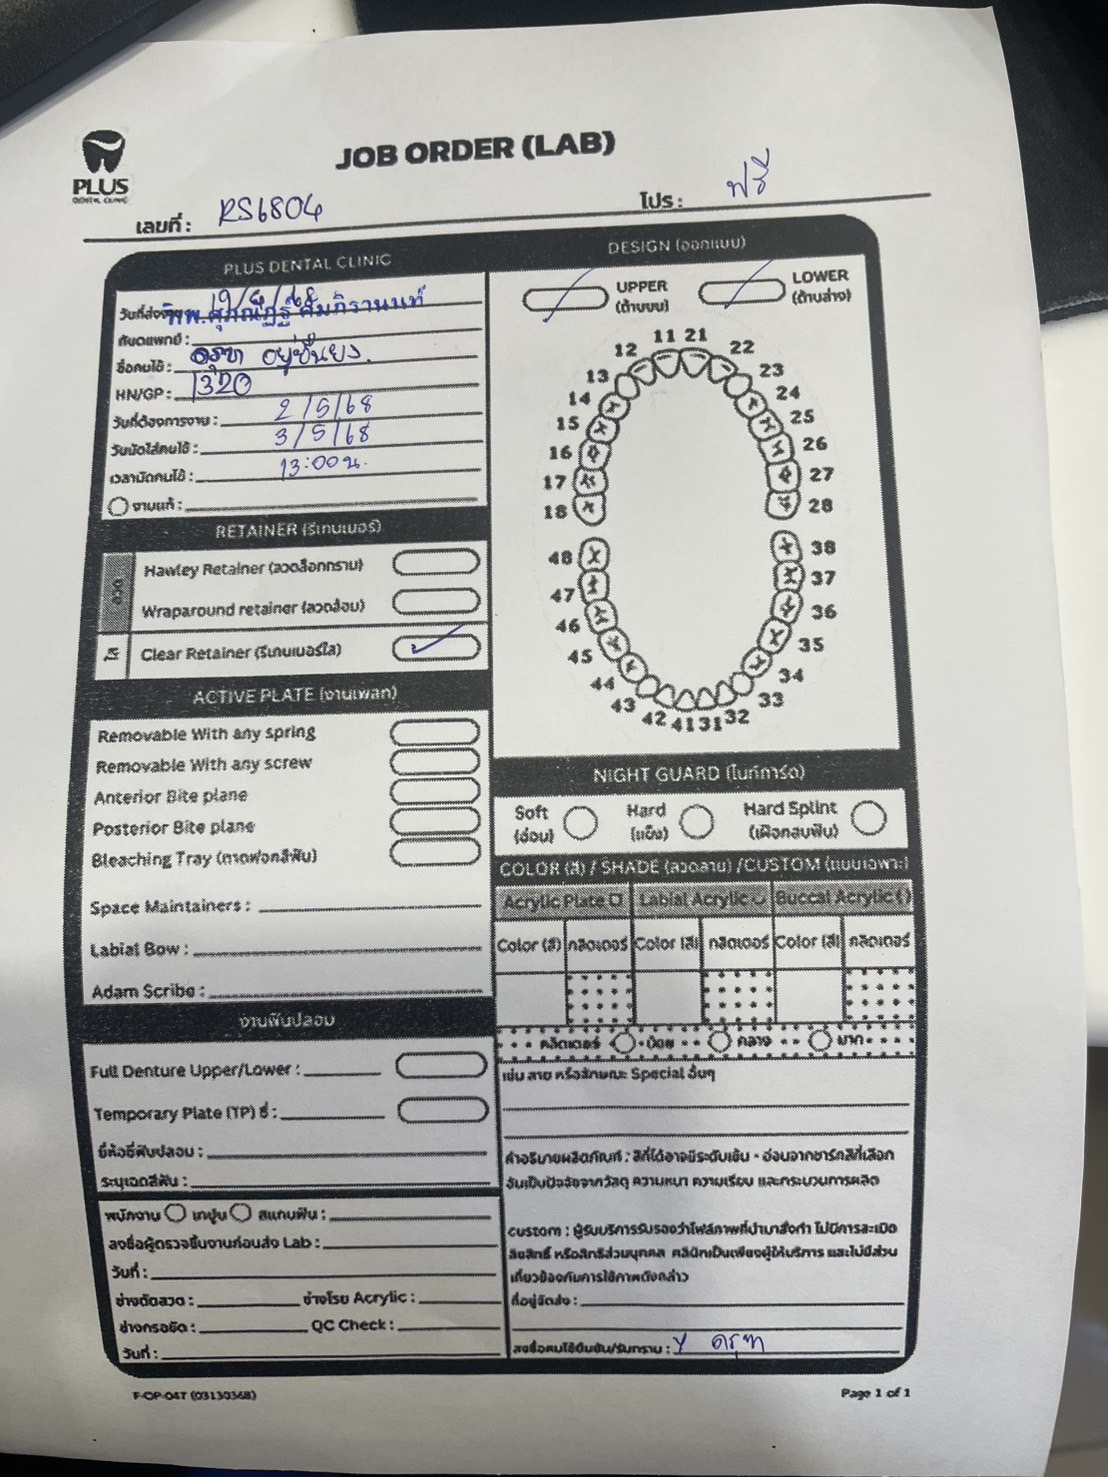 PLUS
DENTAL CLINIC
JOB ORDER (LAB)
เลขที่ : RS6804
โปร : ฟรี
PLUS DENTAL CLINIC
วันที่ส่งงาน 19/4/68
ทันตแพทย์ : ทพ.ศุภณัฏฐ์ คัมภิรานนท์
ชื่อคนไข้ :
HN/GP : 1320
วันที่ต้องการงาน : 2/5/68
วันนัดใส่คนไข้ : 3/5/68
เวลานัดคนไข้ : 13:00 น.
งานแก้ :
RETAINER (รีเทนเนอร์)
ลวด
Hawley Retainer (ลวดล็อกกราม)
Wraparound retainer (ลวดอ้อม)
ใส
Clear Retainer (รีเทนเนอร์ใส)
ACTIVE PLATE (งานเพลท)
Removable With any spring
Removable With any screw
Anterior Bite plane
Posterior Bite plane
Bleaching Tray (ถาดฟอกสีฟัน)
Space Maintainers :
Labial Bow :
Adam Scribe :
งานฟันปลอม
Full Denture Upper/Lower :
Temporary Plate (TP) ซี่ :
ยี่ห้อซี่ฟันปลอม :
ระบุเฉดสีฟัน :
พนักงาน เทปูน สแกนฟัน :
ลงชื่อผู้ตรวจชิ้นงานก่อนส่ง Lab :
วันที่ :
ช่างดัดลวด : ช่างโรย Acrylic :
ช่างกรอขัด : QC Check :
วันที่ :
DESIGN (ออกแบบ)
UPPER
(ด้านบน)
LOWER
(ด้านล่าง)
11 21
12 22
13 23
14 24
15 25
16 26
17 27
18 28
48 38
47 37
46 36
45 35
44 34
43 33
42 41 31 32
NIGHT GUARD (ไนท์การ์ด)
Soft
(อ่อน)
Hard
(แข็ง)
Hard Splint
(เฝือกสบฟัน)
COLOR (สี) / SHADE (ลวดลาย) /CUSTOM (แบบเฉพาะ)
Acrylic Plate Labial Acrylic Buccal Acrylic
Color (สี) กลิตเตอร์ Color (สี) กลิตเตอร์ Color (สี) กลิตเตอร์
กลิตเตอร์ น้อย กลาง มาก
เช่น ลาย หรือลักษณะ Special อื่นๆ
คำอธิบายผลิตภัณฑ์ : สีที่ได้อาจมีระดับเข้ม - อ่อนจากชาร์ทสีที่เลือก
อันเป็นปัจจัยจากวัสดุ ความหนา ความเรียบ และกระบวนการผลิต
custom : ผู้รับบริการรับรองว่าไฟล์ภาพที่นำมาสั่งทำ ไม่มีการละเมิด
ลิขสิทธิ์ หรือสิทธิส่วนบุคคล คลินิกเป็นเพียงผู้ให้บริการ และไม่มีส่วน
เกี่ยวข้องกับการใช้ภาพดังกล่าว
ที่อยู่จัดส่ง :
ลงชื่อคนไข้ยืนยัน/รับทราบ :
F-OP-047 (03130368)
Page 1 of 1